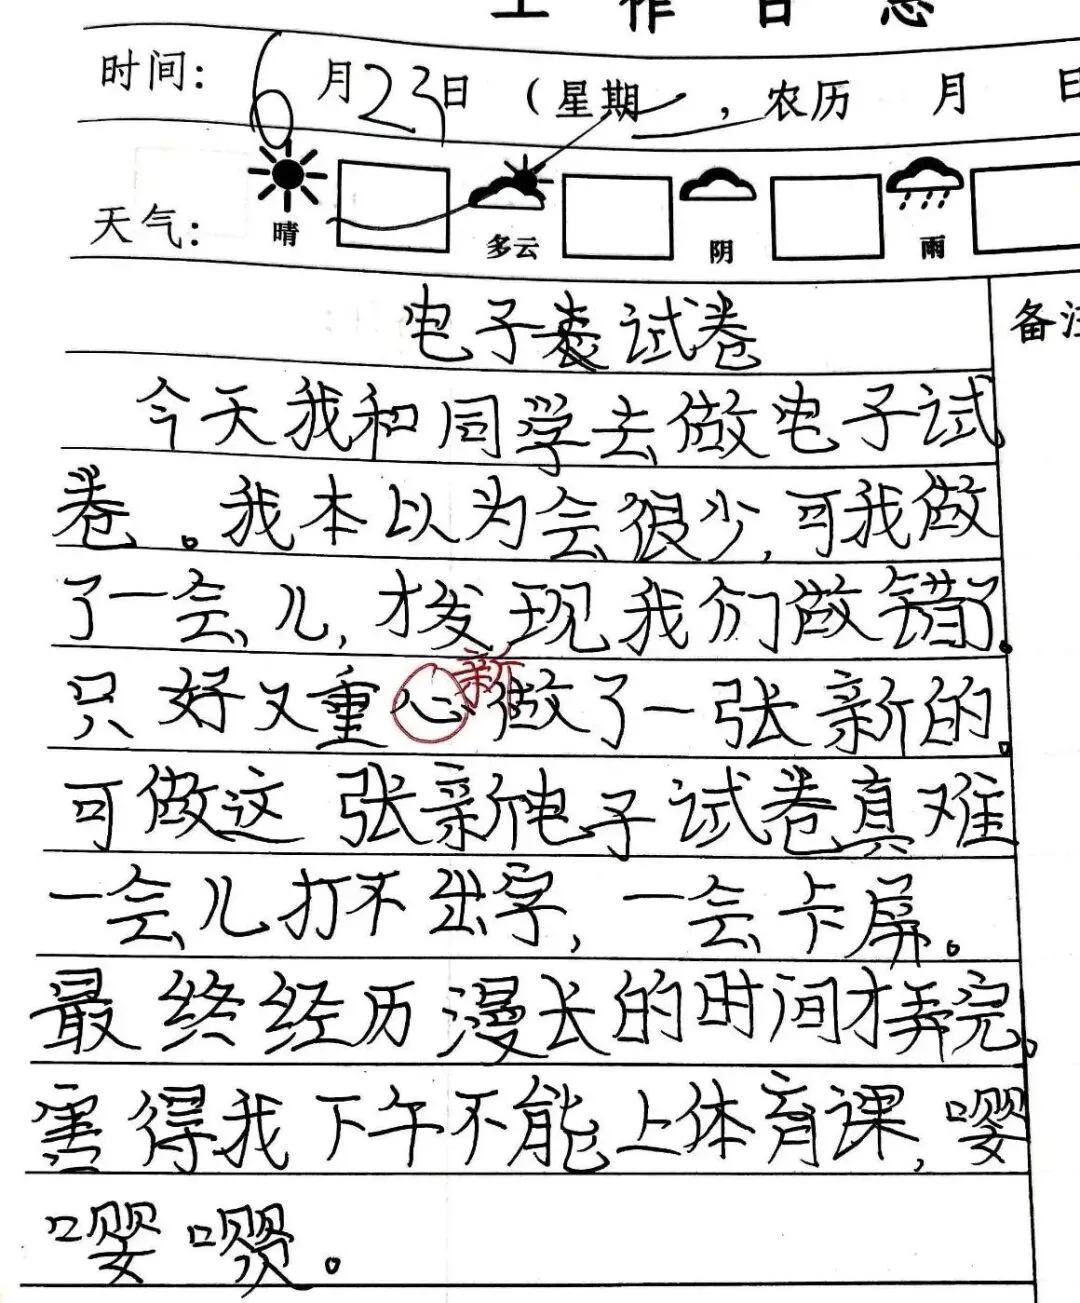 工作日志
时间：6月23日（星期一，农历 月 日
天气： 晴 多云 阴 雨
电子表试卷
备注
今天我和同学去做电子试
卷。我本以为会很少，可我做
了一会儿，才发现我们做错了。
只好又重心新做了一张新的。
可做这张新电子试卷真难
一会儿打不出字，一会卡屏。
最终经历漫长的时间才弄完。
害得我下午不能上体育课，嘤
嘤嘤。